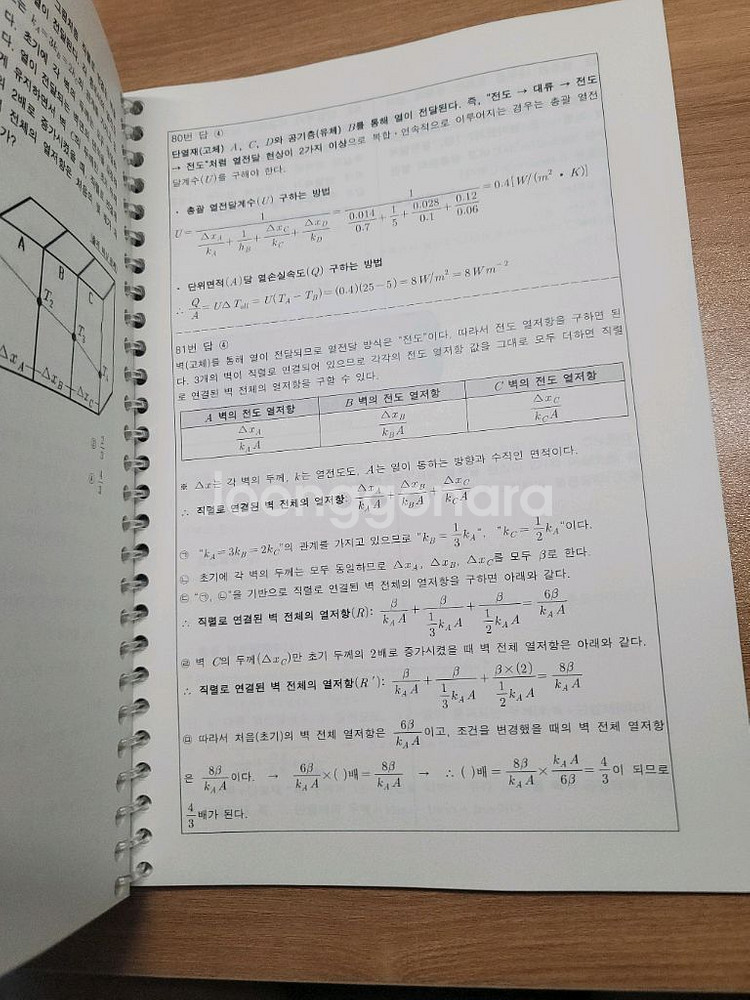 그림처럼
열이 전달된다.
는 k_A=3k_B=2k_C
다. 초기에 각
다. 열이 전달되는
게 유지하면서 벽 C의
의 2배로 증가시켰을 때,
전체의 열저항은 처음의
가?
A
B
C
T_2
T_3
T_4
Δx_A
Δx_B
Δx_C
② 2/3
④ 4/3
80번 답 ④
단열재(고체) A, C, D와 공기층(유체) B를 통해 열이 전달된다. 즉, "전도 → 대류 → 전도
→ 전도"처럼 열전달 현상이 2가지 이상으로 복합·연속적으로 이루어지는 경우는 총괄 열전
달계수(U)를 구해야 한다.
· 총괄 열전달계수(U) 구하는 방법
U = 1/(Δx_A/k_A + 1/h_B + Δx_C/k_C + Δx_D/k_D) = 1/(0.014/0.7 + 1/5 + 0.028/0.1 + 0.12/0.06) = 0.4[W/(m² • K)]
· 단위면적(A)당 열손실속도(Q) 구하는 방법
∴ Q/A = UΔT_all = U(T_A − T_B) = (0.4)(25−5) = 8W/m² = 8Wm⁻²
81번 답 ④
벽(고체)를 통해 열이 전달되므로 열전달 방식은 "전도"이다. 따라서 전도 열저항을 구하면 된
다. 3개의 벽이 직렬로 연결되어 있으므로 각각의 전도 열저항 값을 그대로 모두 더하면 직렬
로 연결된 벽 전체의 열저항을 구할 수 있다.
A 벽의 전도 열저항 B 벽의 전도 열저항 C 벽의 전도 열저항
Δx_A/(k_A A) Δx_B/(k_B A) Δx_C/(k_C A)
※ Δx는 각 벽의 두께, k는 열전도도, A는 일이 통하는 방향과 수직인 면적이다.
∴ 직렬로 연결된 벽 전체의 열저항: Δx_A/(k_A A) + Δx_B/(k_B A) + Δx_C/(k_C A)
joonggonara
㉠ "k_A=3k_B=2k_C"의 관계를 가지고 있으므로 "k_B = 1/3 k_A", "k_C = 1/2 k_A"이다.
㉡ 초기에 각 벽의 두께는 모두 동일하므로 Δx_A, Δx_B, Δx_C를 모두 β로 한다.
㉢ "㉠, ㉡"을 기반으로 직렬로 연결된 벽 전체의 열저항을 구하면 아래와 같다.
∴ 직렬로 연결된 벽 전체의 열저항(R): β/(k_A A) + β/(1/3 k_A A) + β/(1/2 k_A A) = 6β/(k_A A)
㉣ 벽 C의 두께(Δx_C)만 초기 두께의 2배로 증가시켰을 때 벽 전체 열저항은 아래와 같다.
∴ 직렬로 연결된 벽 전체의 열저항(R′): β/(k_A A) + β/(1/3 k_A A) + β×(2)/(1/2 k_A A) = 8β/(k_A A)
㉤ 따라서 처음(초기)의 벽 전체 열저항은 6β/(k_A A)이고, 조건을 변경했을 때의 벽 전체 열저항
은 8β/(k_A A)이다. → 6β/(k_A A) ×( )배= 8β/(k_A A) → ∴ ( )배= 8β/(k_A A) × k_A A/6β = 4/3이 되므로
4/3배가 된다.